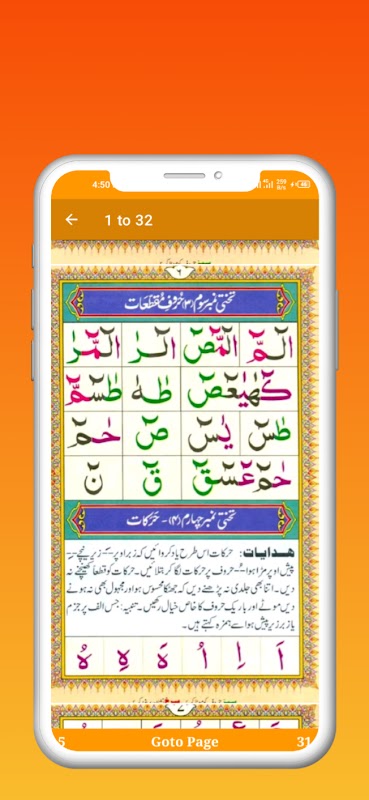 4:50
1 to 32
٦
تختی نمبر سوم (۳) حروفِ مُقطّعَات
الٓمّٓ الٓمّٓصٓ الٓرٰ الٓمّٓرٰ
كٓهٰيٰعٓصٓ طٰهٰ طٰسٓمّٓ
طٰسٓ يٰسٓ صٓ حٰمٓ
حٰمٓ عٓسٓقٓ قٓ نٓ
تختی نمبر چہارم (۴) - حَرَکات
ھدایات: حرکات اس طرح یاد کروائیں کہ زبر اوپر ــَـ زیر نیچے ــِـ
پیش اوپر مڑا ہوا ــُـ حروف پر حرکات لگا کر بتلائیں۔ حرکات کو قطعاً کھینچنے نہ
دیں۔ اتنا بھی جلدی نہ پڑھنے دیں کہ جھٹکا محسوس ہو اور مجہول بھی نہ ہونے
دیں موٹے اور باریک حروف کا خاص خیال رکھیں۔ تنبیہ: جس الف پر جزم
یا زبر زیر پیش ہو اسے ہمزہ کہتے ہیں۔
اَ اِ اُ هَ هِ هُ
٧
5 Goto Page 31